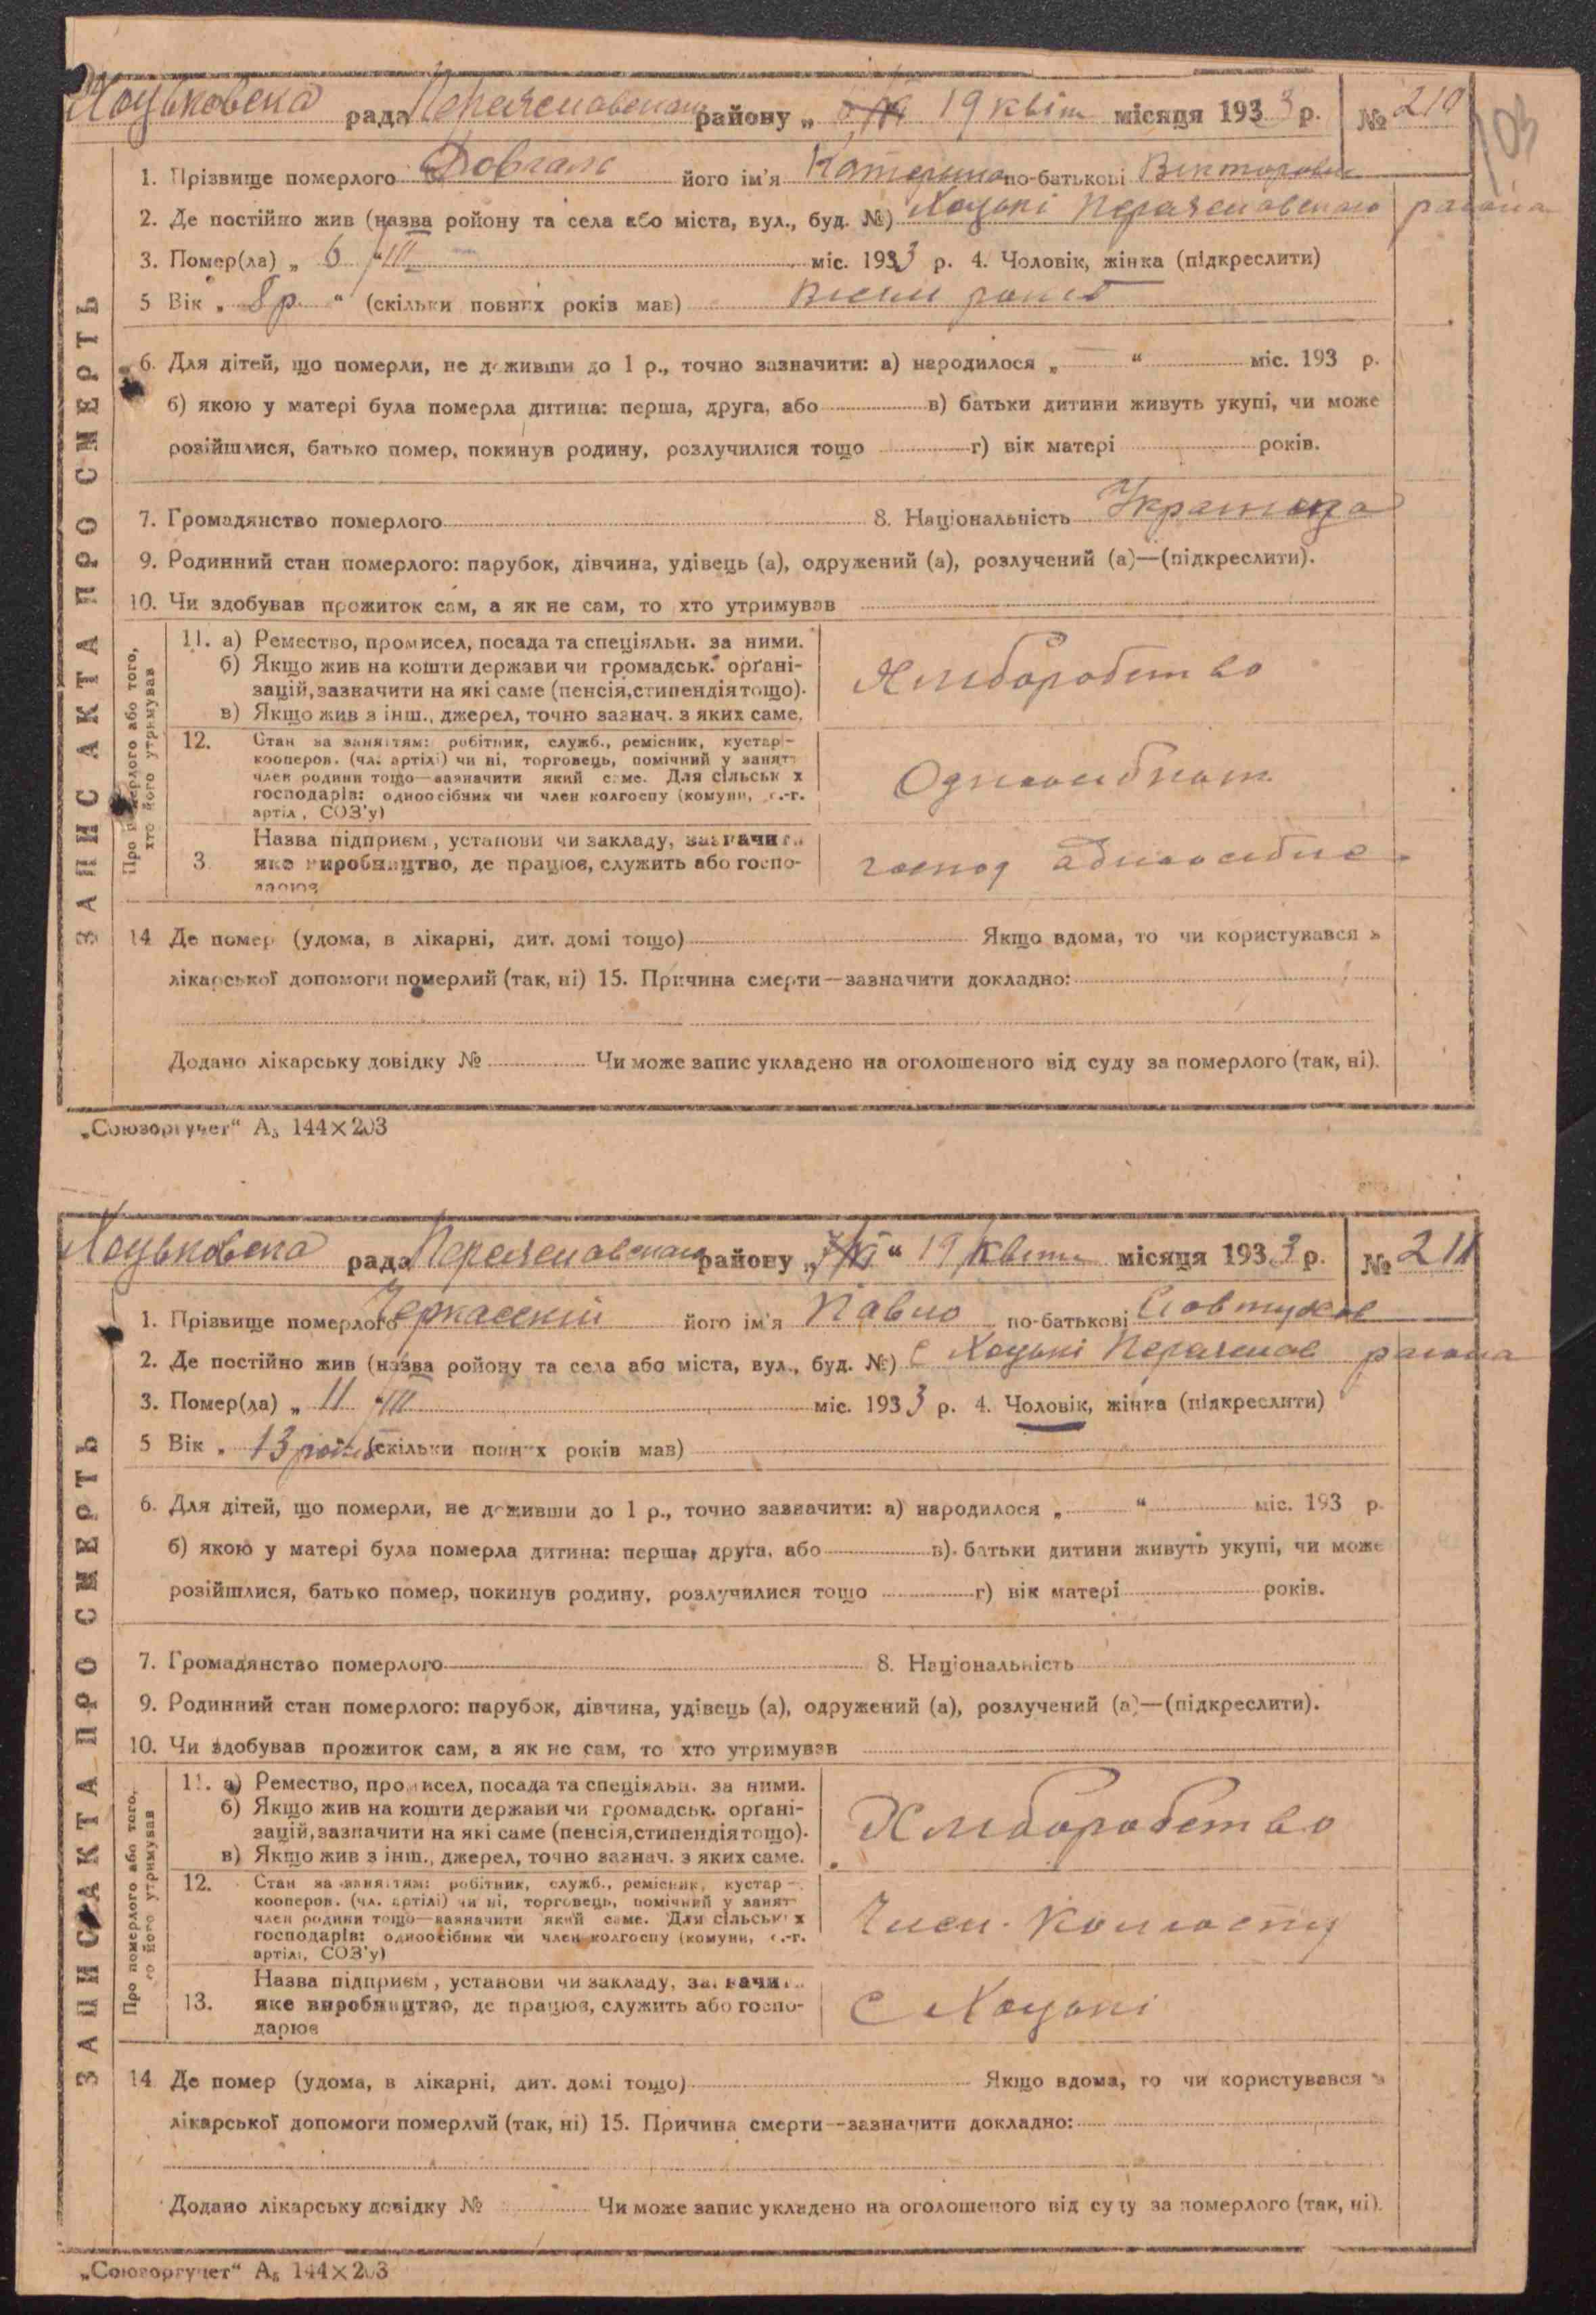 Хоцьковска рада Переяславськаго району „ 19 квітн місяця 1933 р. № 210
103
1. Прізвище померлого Довгаль його ім'я Катерина по-батькові Викторовн
2. Де постійно жив (назва ройону та села або міста, вул., буд. №) Хоцькі Переяславського района
3. Помер(ла) „ 6 " III міс. 1933 р. 4. Чоловік, жінка (підкреслити)
5 Вік „ 8 р. " (скільки повних років мав) Вісим років
6. Для дітей, що померли, не доживши до 1 р., точно зазначити: а) народилося „ " міс. 193 р.
б) якою у матері була померла дитина: перша, друга, або в) батьки дитини живуть укупі, чи може
розійшлися, батько помер, покинув родину, розлучилися тощо г) вік матері років.
7. Громадянство померлого 8. Національність Украинка
9. Родинний стан померлого: парубок, дівчина, удівець (а), одружений (а), розлучений (а)—(підкреслити).
10. Чи здобував прожиток сам, а як не сам, то хто утримував
11. а) Ремество, промисел, посада та спеціяльн. за ними.
б) Якщо жив на кошти держави чи громадськ. орґані-
зацій, зазначити на які саме (пенсія, стипендія тощо).
в) Якщо жив з інш., джерел, точно зазнач. з яких саме.
Хліборобство
12. Стан за заняттям: робітник, служб., ремісник, кустар-
кооперов. (чл. артілі) чи ні, торговець, помічний у занят
член родини тощо—зазначити який саме. Для сільськ х
господарів: одноосібник чи член колгоспу (комуни, с.-г.
артіл, СОЗ'у)
Одноосібник
3. Назва підприєм, установи чи закладу, зазначити
яке виробництво, де працює, служить або госпо-
дарює
господ адноосибне
Про померлого або того, хто його утримував
14 Де помер (удома, в лікарні, дит. домі тощо) Якщо вдома, то чи користувався з
лікарської допомоги померлий (так, ні) 15. Причина смерти—зазначити докладно:
Додано лікарську довідку № Чи може запис укладено на оголошеного від суду за померлого (так, ні).
ЗАПИС АКТА ПРО СМЕРТЬ
„Союзоргучет" А₅ 144×203
Хоцьковска рада Переяславскаго району „ " 19 квітн місяця 1933 р. № 211
1. Прізвище померлого Черкасский його ім'я Павло по-батькові
2. Де постійно жив (назва ройону та села або міста, вул., буд. №) С Хоцькі Переяслав района
3. Помер(ла) „ 11 " III міс. 1933 р. 4. Чоловік, жінка (підкреслити)
5 Вік „ 13 років (скільки повних років мав)
6. Для дітей, що померли, не доживши до 1 р., точно зазначити: а) народилося „ " міс. 193 р.
б) якою у матері була померла дитина: перша, друга, або в). батьки дитини живуть укупі, чи може
розійшлися, батько помер, покинув родину, розлучилися тощо г) вік матері років.
7. Громадянство померлого 8. Національність
9. Родинний стан померлого: парубок, дівчина, удівець (а), одружений (а), розлучений (а)—(підкреслити).
10. Чи здобував прожиток сам, а як не сам, то хто утримував
11. а) Ремество, промисел, посада та спеціяльн. за ними.
б) Якщо жив на кошти держави чи громадськ. орґані-
зацій, зазначити на які саме (пенсія, стипендія тощо).
в) Якщо жив з інш., джерел, точно зазнач. з яких саме.
Хліборобство
12. Стан за заняттям: робітник, служб., ремісник, кустар-
кооперов. (чл. артілі) чи ні, торговець, помічний у занят
член родини тощо—зазначити який саме. Для сільськ х
господарів: одноосібник чи член колгоспу (комуни, с.-г.
артілі, СОЗ'у)
Член Колгоспу
13. Назва підприєм, установи чи закладу, зазначити
яке виробництво, де працює, служить або госпо-
дарює
С Хоцькі
Про померлого або того, хто його утримував
14 Де помер (удома, в лікарні, дит. домі тощо) Якщо вдома, то чи користувався з
лікарської допомоги померлий (так, ні) 15. Причина смерти—зазначити докладно:
Додано лікарську довідку № Чи може запис укладено на оголошеного від суду за померлого (так, ні).
ЗАПИС АКТА ПРО СМЕРТЬ
„Союзоргучет" А₅ 144×203